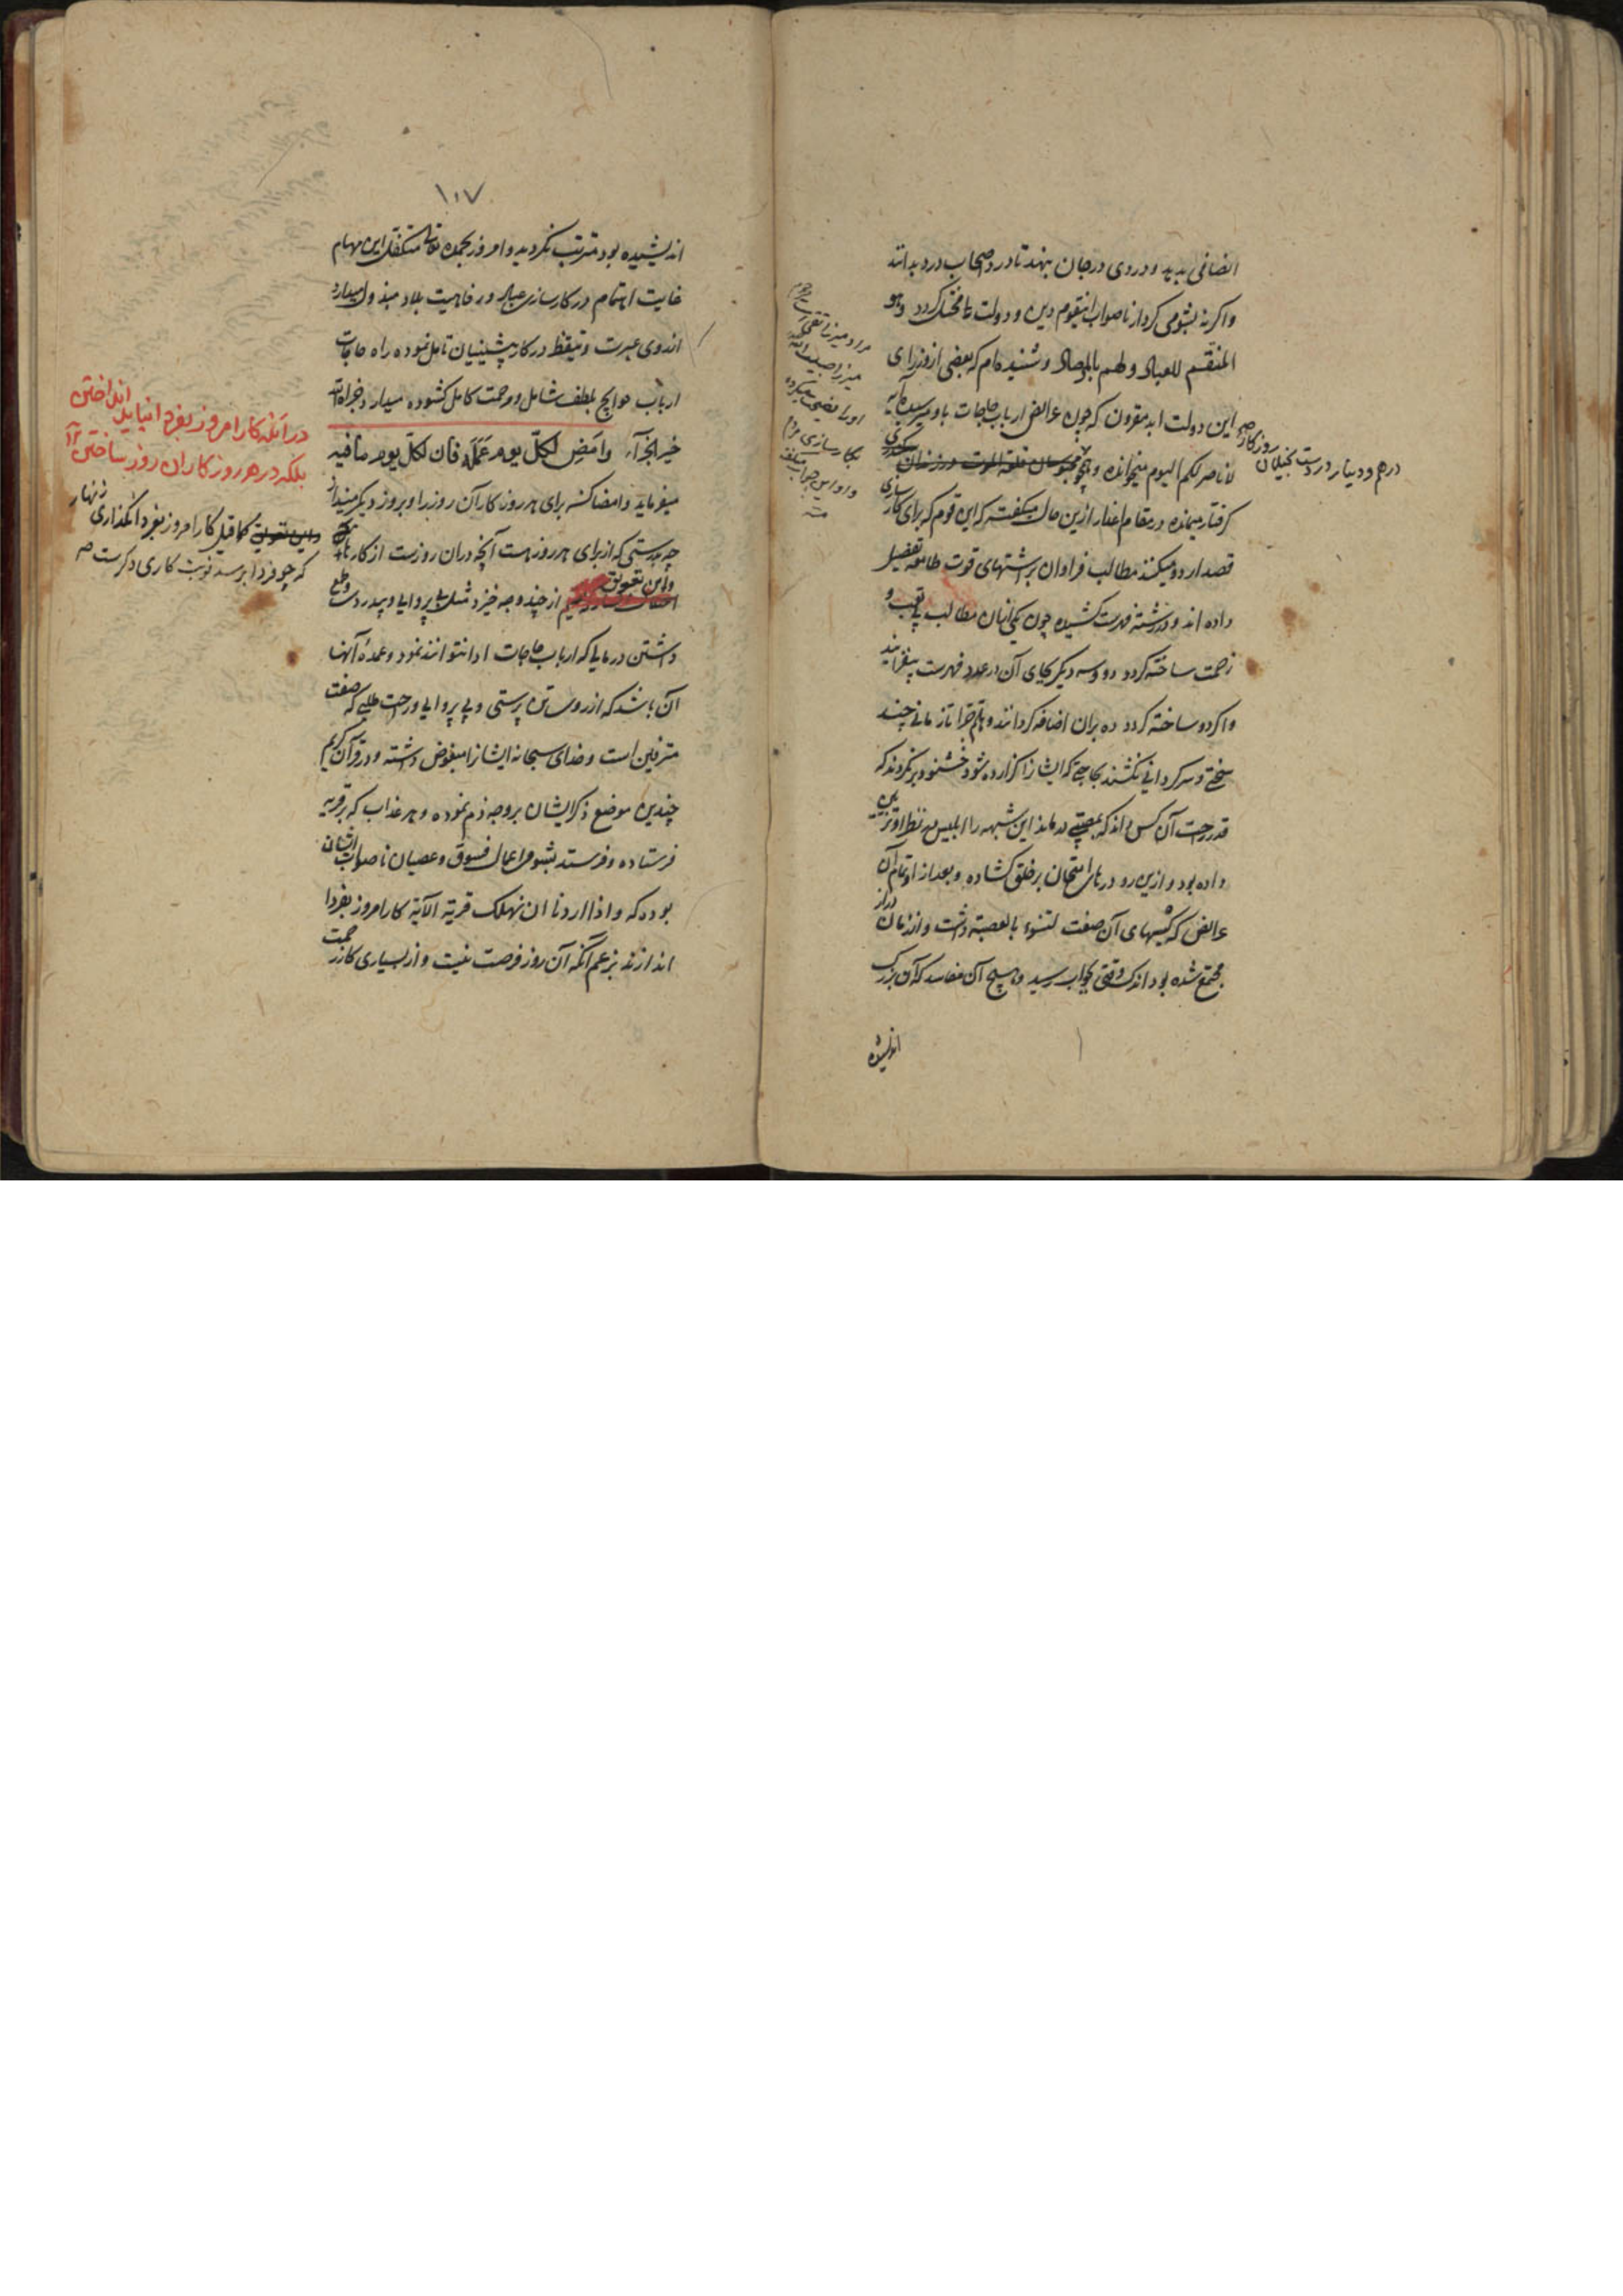 انصافی بدهد و دردی در جان نهد تا درد اصحاب درد بدانند
واگرنه بشومی کردار ناصواب اینقوم دین و دولت ما مختل گردد وهو
المنتقم للعباد ولهم بالمرصاد و شنیده‌ام که بعضی از وزرای
این دولت ابد مقرون که چون عرایض ارباب حاجات باو رسیدی آیه
لا ناصر لکم الیوم میخوانده و همچو محبوسان قلعة الموت در زندان سکندری
گرفتار میمانده در مقام اعتذار ازین حال میگفته که این قوم که برای کارسازی
قصد اردو میکنند مطالب فراوان برشتهای قوت طامعه تفصیل
داده‌اند و در رشته فهرست کشیده چون یکی از آن مطالب بی تعب و
زحمت ساخته گردد دو و سه دیگر بجای آن در عدد فهرست بیفزایند
و اگر دو ساخته گردد ده بران اضافه گردانند و تا زمانی چند
سختی و سرگردانی نکشند بحاجتی که ایشان را گزارده شود خشنود برنگردند که
قدر راحت آن کس داند که بمصیبتی درماند این شبهه را ابلیس در نظر او تزیین
داده بود و ازین رو درهای امتحان بر خلق گشاده و بعد از او تمام آن
عرایض که کیسهای آن صفت لتنوء بالعصبة داشت و از زمان دراز
مجتمع شده بود اندک وقتی بجواب رسید و هیچ آن مفاسد که آن بزرگ
اندیشیده
درهم و دینار در دست بخیلان روزگار
مراد میرزا تقی
میرزا حبیب الله
او را نصیحت میکرده
بکارسازی مردم
و او این جواب میگفته
منه
۱۰۷
اندیشیده بود مترتب نگردید و امروز بحمد الله تعالی متکفل این مهام
غایت اهتمام در کارسازی عباد و رفاهیت بلاد مبذول میدارد
از روی عبرت و تیقظ در کار پیشینیان تامل نموده راه حاجات
ارباب حوایج بلطف شامل و رحمت کامل گشوده میدارد فجزاه الله
خیر الجزآء وامض لکل یوم عمله فان لکل یوم ما فیه
میفرماید و امضا کن برای هر روز کار آن روز را و بروز دیگر مینداز
چه بدرستی که از برای هر روز هست آنچه دران روزست از کارها
واین تعویق از چند وجه خیزد مثل بی پروایی و بیدردی وطمع
داشتن در مایل که ارباب حاجات ادا نتوانند نمود و عمدهٔ آنها
آن باشد که از روی تن پرستی و بی پروایی و راحت طلبی که صفت
مترفین است و خدای سبحانه ایشان را مبغوض داشته و در قرآن کریم
چندین موضع ذکر ایشان بر وجه ذم نموده و هر عذاب که بر قریه
فرستاده و فرستد بشومی اعمال فسوق و عصیان ناصواب ایشان
بوده که واذا اردنا ان نهلک قریة الآیه کار امروز بفردا
اندازند بزعم آنکه آن روز فرصت نیست و از بسیاری کار زحمت
در آنکه کار امروز بفردا نباید انداختن
بلکه در هر روز کار آن روز ساختن
کما قیل کار امروز بفردا نگذاری زنهار
که چو فردا برسد نوبت کاری دگرست